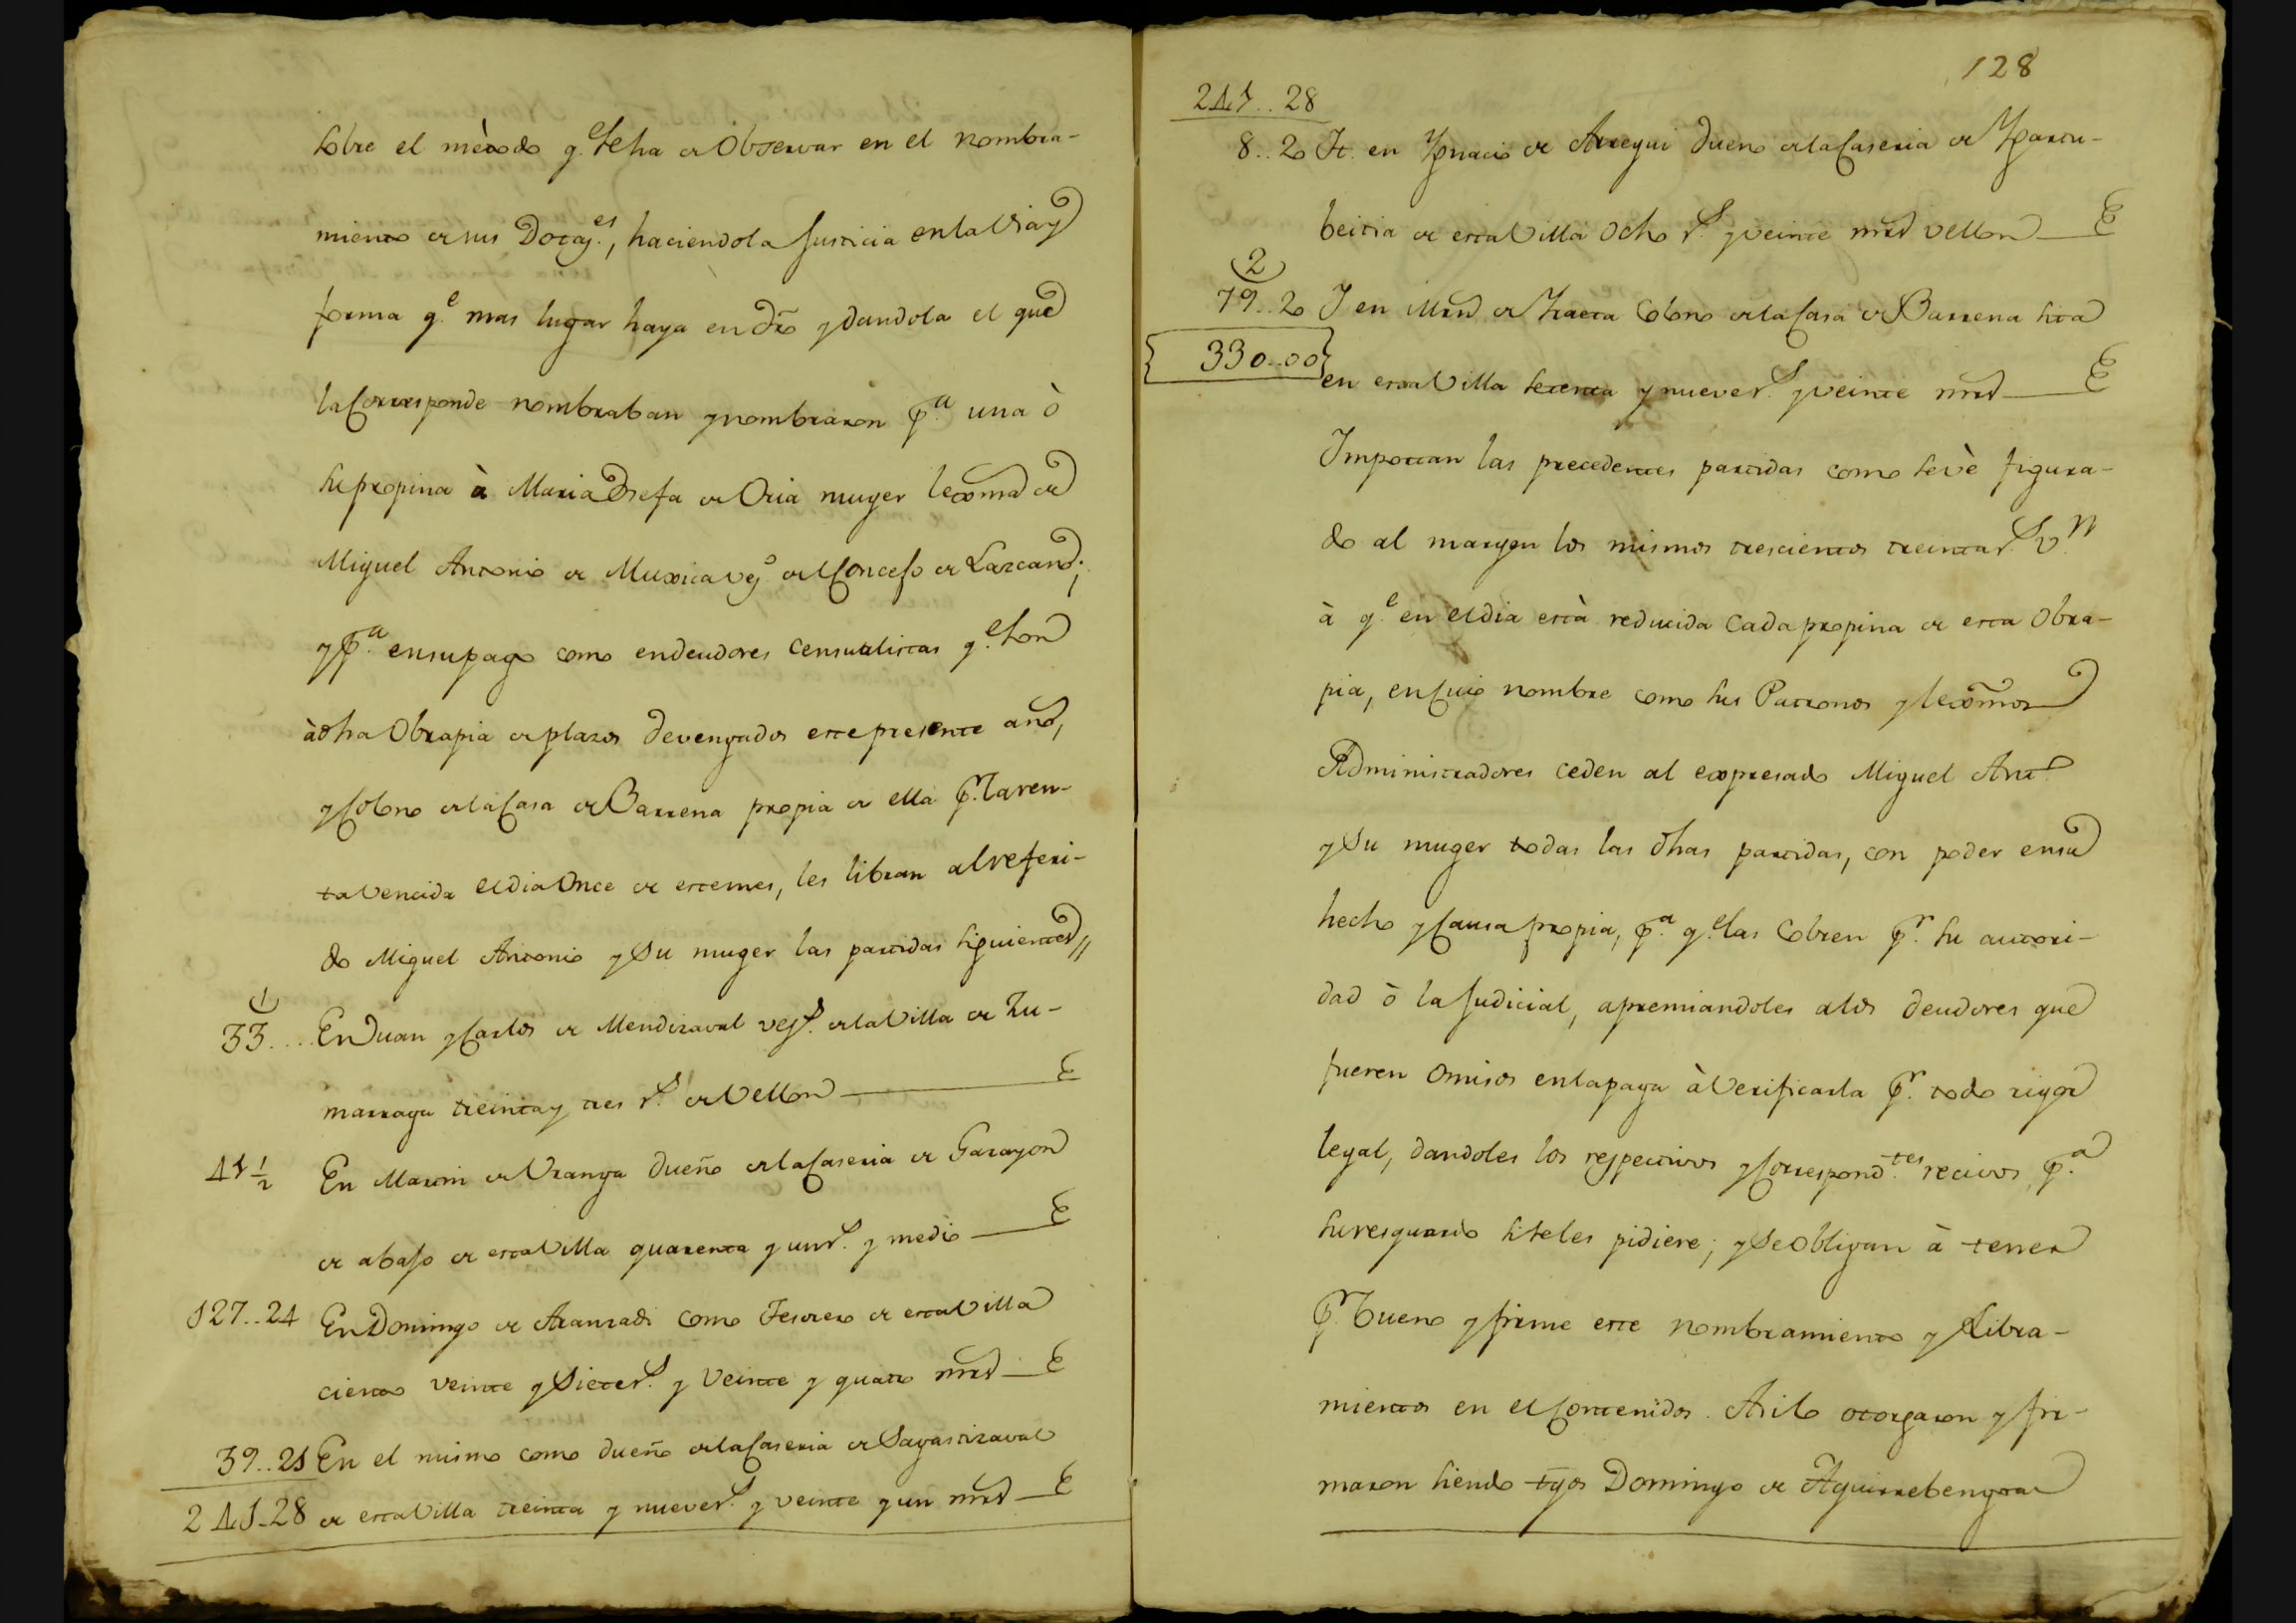 sobre el mètodo q.e se ha de observar en el nombra-
miento de sus Dotag.es, haciendola Justicia en la via y
forma q.e mas lugar haya en dr̃o y dandola el que
la Corresponde nombraban y nombraron p.a una ò
su propina à Maria Josefa de Oria muger lexma de
Miguel Antonio de Muxica veg.o del Concejo de Lazcano;
y p.a en su pago como en deudores Censualistas q.e son
à dha Obrapia de plazos devengados este presente año,
y Colono de la Casa de Barrena propia de ella p.r la ren-
ta vencida el dia Once de este mes, les libran al referi-
do Miguel Antonio y su muger las partidas siguientes//
1
33.... En Juan y Carlos de Mendizaval vej.s de la Villa de Zu-
marraga treinta y tres r.s de Vellon
41 1/2 En Martin de Uranga dueño de la Caseria de Garayon
de abajo de esta Villa quarenta y un r.s y medio
127..24 En Domingo de Aranzadi como Tesorero de esta Villa
ciento veinte y siete r.s y veinte y quatro mrs
39..21 En el mismo como dueño de la Caseria de Sagastizaval
241-28 de esta Villa treinta y nueve r.s y veinte y un mrs
128
241..28
8..20 It. en Ygnacio de Arregui dueno de la Caseria de Yparcu-
beitia de esta Villa Ocho r.s y veinte mrs vellon
2
79..20 I en Mrn de Yraeta Colono de la Casa de Barrena sita
330..00 en esta Villa setenta y nueve r.s y veinte mrs
Importan las precedentes partidas como se vè figura-
do al margen los mismos trescientos treinta r.s v.n
à q.e en el dia està reducida Cada propina de esta Obra-
pia, en Cuio nombre como sus Patronos y lexmos
Administradores ceden al expresado Miguel Ant.o
y su muger todas las dhas partidas, con poder en su
hecho y Causa propia, p.a q.e las Cobren p.r su autori-
dad ò la Judicial, apremiandoles a los deudores que
fueren Omisos en la paga à Verificarla p.r todo rigor
legal, dandoles los respectivos y Correspond.tes recivos p.a
su resguardo si se les pidiere; y se obligan à tener
p.r bueno y firme este nombramiento y Libra-
mientos en el Contenidos. Asi lo otorgaron y fir-
maron siendo tgos Domingo de Aguirrebengoa